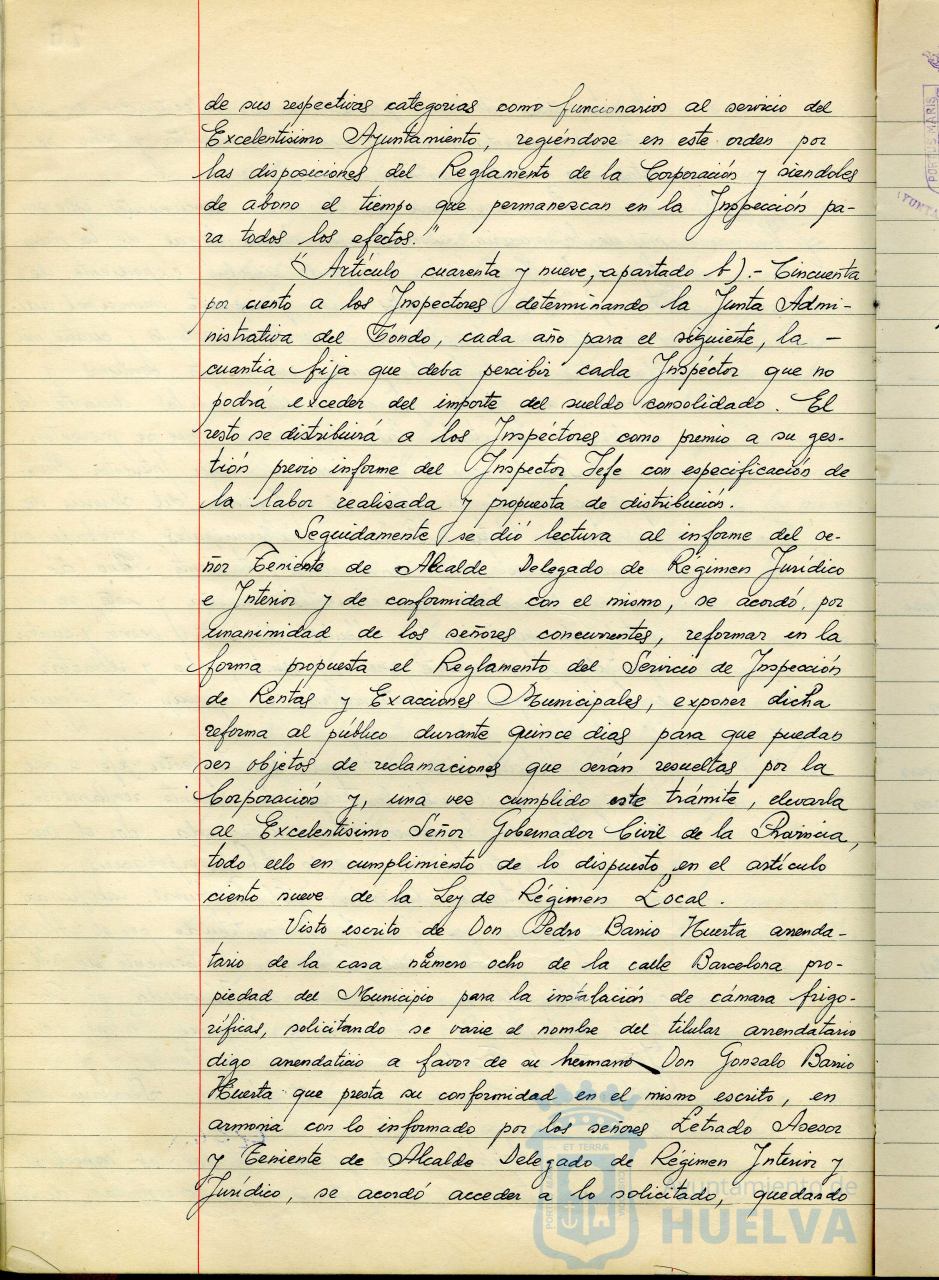 de sus respectivas categorias como funcionarios al servicio del
Excelentisimo Ayuntamiento, regiéndose en este orden por
las disposiciones del Reglamento de la Corporación y siendoles
de abono el tiempo que permanezcan en la Inspección pa-
ra todos los efectos."
"Artículo cuarenta y nueve, apartado b).- Cincuenta
por ciento a los Inspectores determinando la Junta Admi-
nistrativa del Fondo, cada año para el siguiente, la -
cuantia fija que deba percibir cada Inspéctor que no
podrá exceder del importe del sueldo consolidado. El
resto se distribuirá a los Inspéctores como premio a su ges-
tión previo informe del Inspector Jefe con especificación de
la labor realisada y propuesta de distribución.
Seguidamente se dió lectura al informe del se-
ñor Teniente de Alcalde Delegado de Régimen Jurídico
e Interior y de conformidad con el mismo, se acordó, por
unanimidad de los señores concurrentes, reformar en la
forma propuesta el Reglamento del Servicio de Inspección
de Rentas y Exacciones Municipales, exponer dicha
reforma al público durante quince dias para que puedan
ser objetos de reclamaciones que serán resueltas por la
Corporación y, una vez cumplido este trámite, elevarla
al Excelentisimo Señor Gobernador Civil de la Provincia,
todo ello en cumplimiento de lo dispuesto en el artículo
ciento nueve de la Ley de Régimen Local.
Visto escrito de Don Pedro Barrio Huerta arrenda-
tario de la casa número ocho de la calle Barcelona pro-
piedad del Municipio para la instalación de cámara frigo-
ríficas, solicitando se varie el nombre del titular arrendatario
digo arrendaticio a favor de su hermano Don Gonzalo Barrio
Huerta que presta su conformidad en el mismo escrito, en
armonia con lo informado por los señores Letrado Asesor
y Teniente de Alcalde Delegado de Régimen Interior y
Jurídico, se acordó acceder a lo solicitado, quedando
Ayuntamiento de
HUELVA
PORTUS MARIS
ET TERRAE